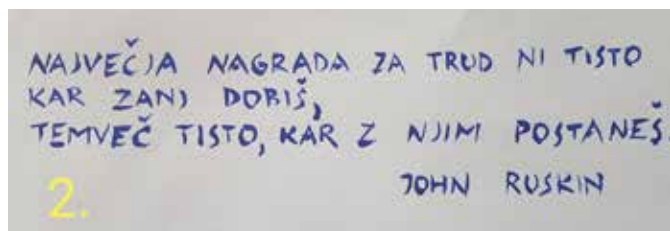 NAJVEČJA NAGRADA ZA TRUD NI TISTO
KAR ZANJ DOBIŠ,
TEMVEČ TISTO, KAR Z NJIM POSTANEŠ.
JOHN RUSKIN
2.